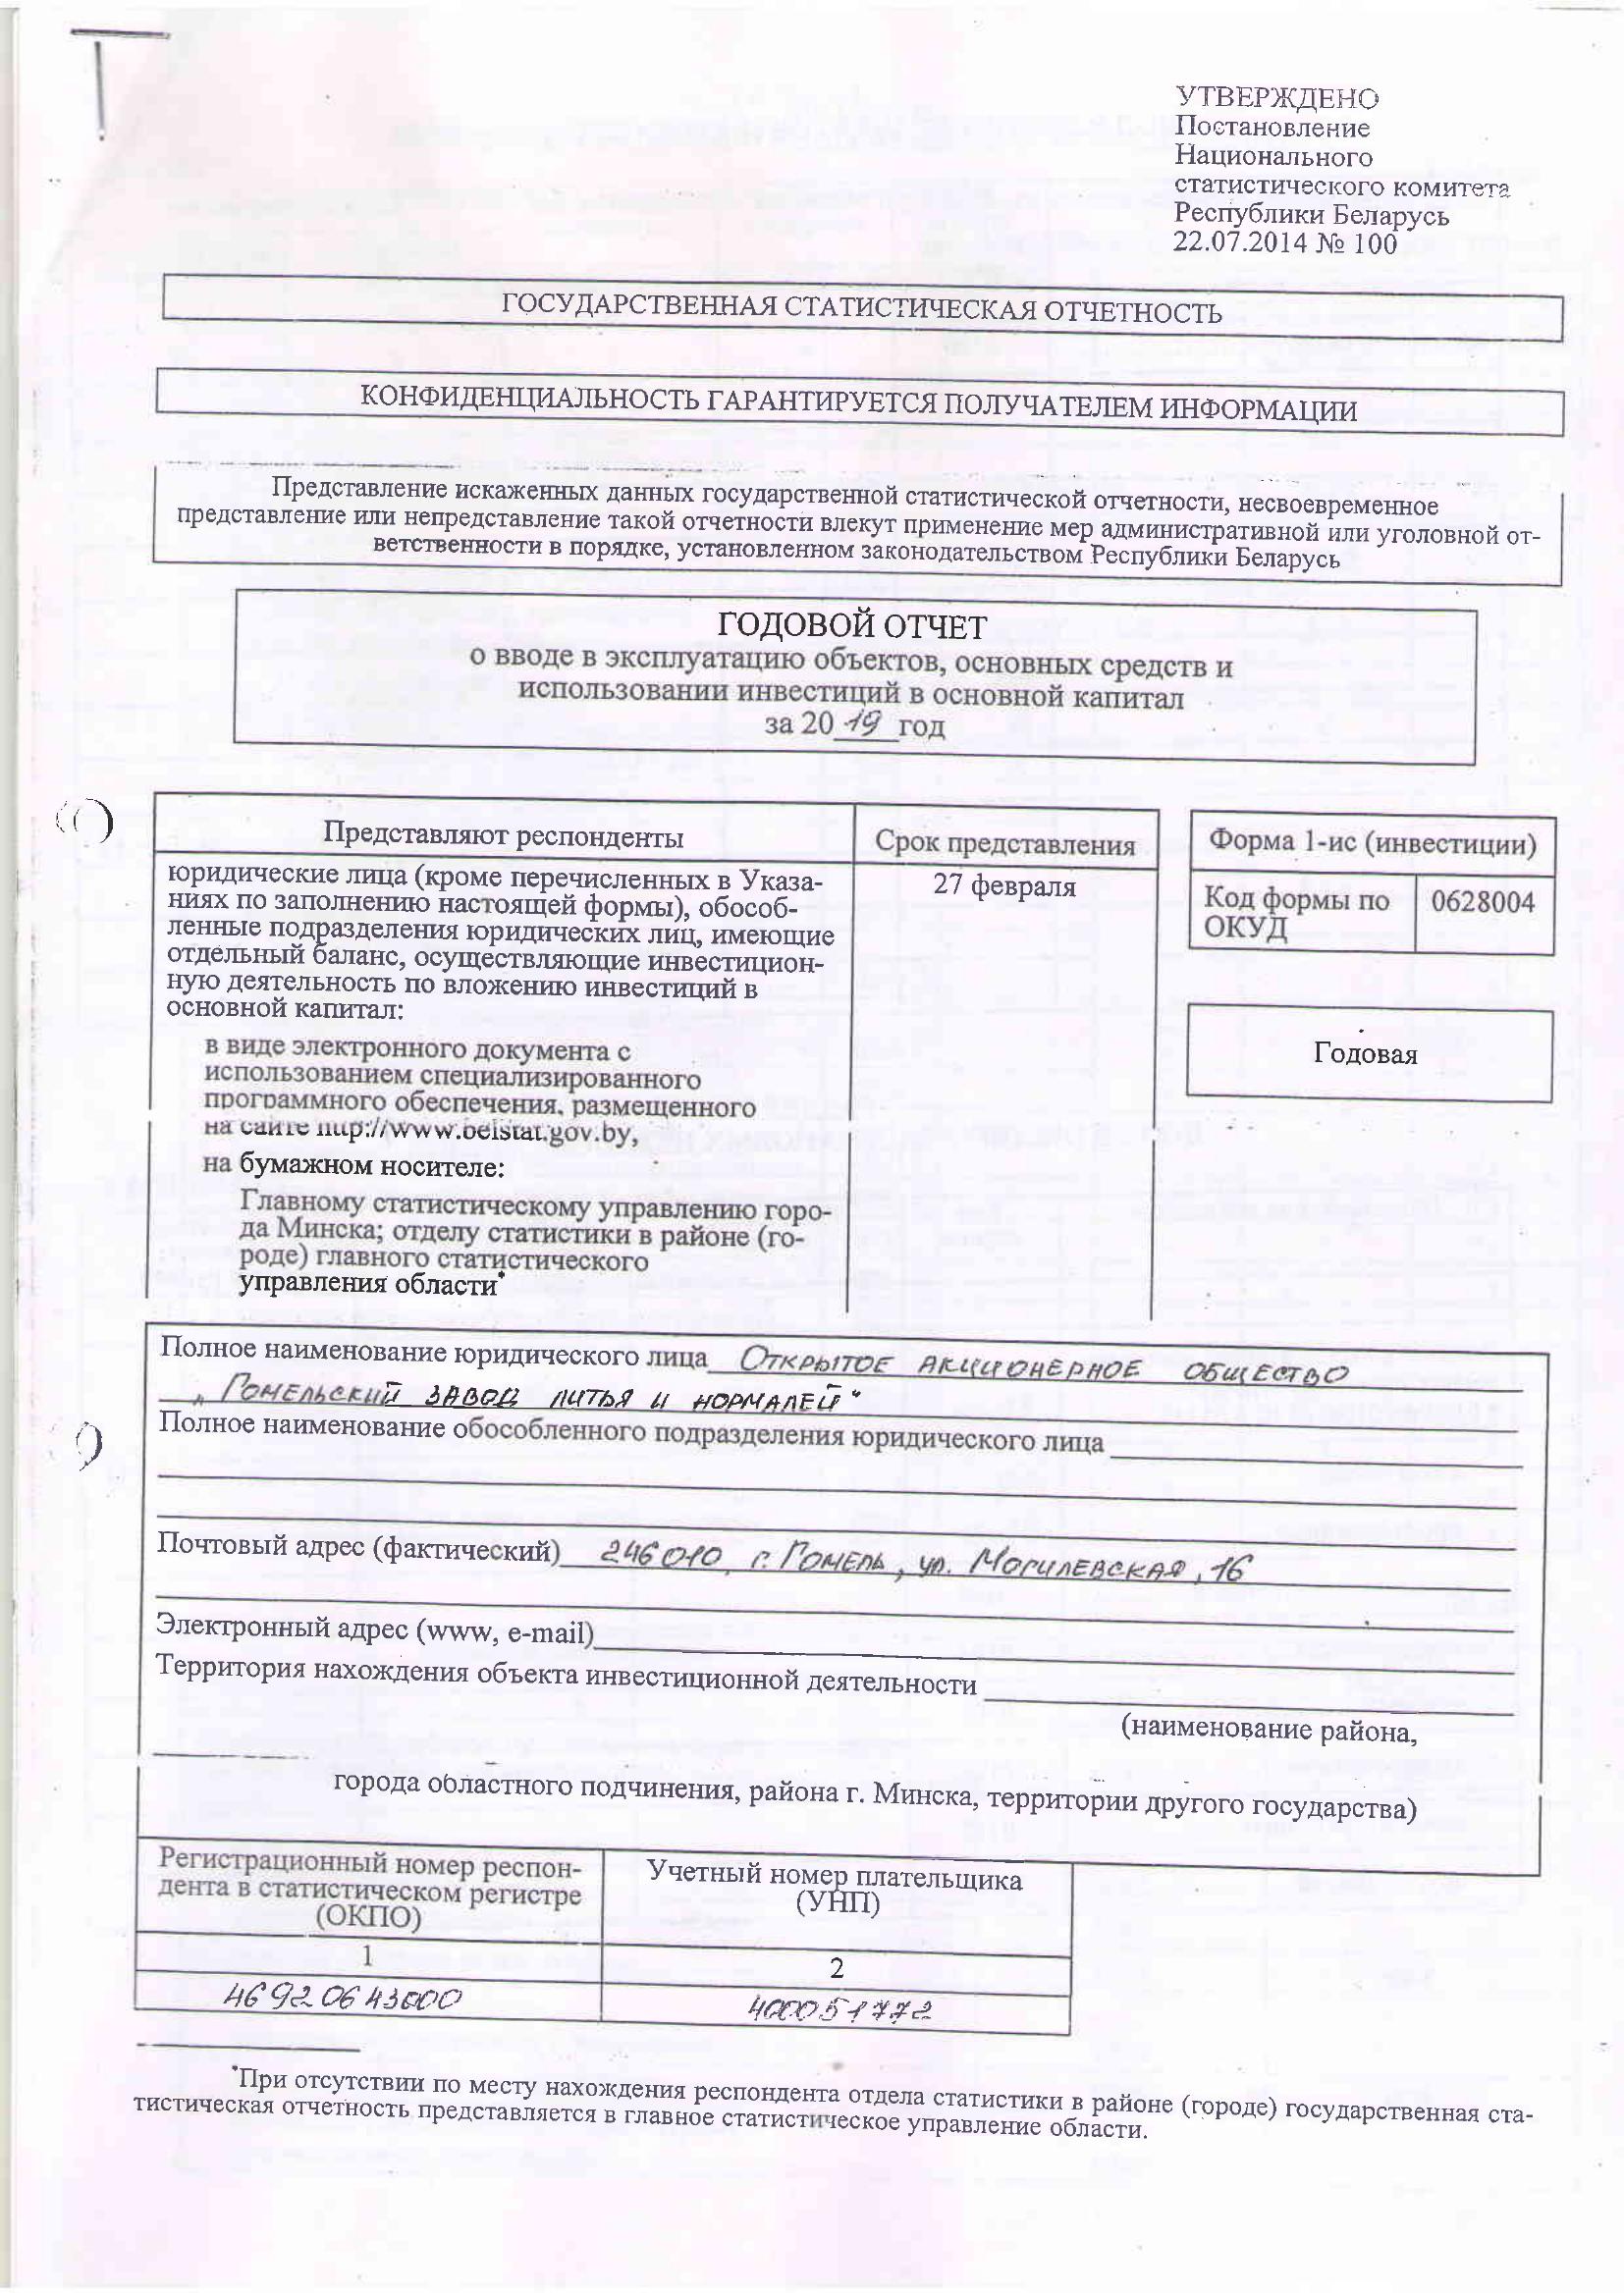 УТВЕРЖДЕНО
Постановление
Национального
статистического комитета
Республики Беларусь
22.07.2014 № 100
ГОСУДАРСТВЕННАЯ СТАТИСТИЧЕСКАЯ ОТЧЕТНОСТЬ
КОНФИДЕНЦИАЛЬНОСТЬ ГАРАНТИРУЕТСЯ ПОЛУЧАТЕЛЕМ ИНФОРМАЦИИ
Представление искаженных данных государственной статистической отчетности, несвоевременное
представление или непредставление такой отчетности влекут применение мер административной или уголовной от-
ветственности в порядке, установленном законодательством Республики Беларусь
ГОДОВОЙ ОТЧЕТ
о вводе в эксплуатацию объектов, основных средств и
использовании инвестиций в основной капитал
за 20 19 год
Представляют респонденты
Срок представления
юридические лица (кроме перечисленных в Указа-
ниях по заполнению настоящей формы), обособ-
ленные подразделения юридических лиц, имеющие
отдельный баланс, осуществляющие инвестицион-
ную деятельность по вложению инвестиций в
основной капитал:
в виде электронного документа с
использованием специализированного
программного обеспечения, размещенного
на сайте http://www.belstat.gov.by,
на бумажном носителе:
Главному статистическому управлению горо-
да Минска; отделу статистики в районе (го-
роде) главного статистического
управления области*
27 февраля
Форма 1-ис (инвестиции)
Код формы по
ОКУД
0628004
Годовая
Полное наименование юридического лица Открытое акционерное общество
„Гомельский завод литья и нормалей“
Полное наименование обособленного подразделения юридического лица
Почтовый адрес (фактический) 246010, г. Гомель, ул. Могилевская, 16
Электронный адрес (www, e-mail)
Территория нахождения объекта инвестиционной деятельности
(наименование района,
города областного подчинения, района г. Минска, территории другого государства)
Регистрационный номер респон-
дента в статистическом регистре
(ОКПО)
Учетный номер плательщика
(УНП)
1
2
46920643000
400051772
*При отсутствии по месту нахождения респондента отдела статистики в районе (городе) государственная ста-
тистическая отчетность представляется в главное статистическое управление области.